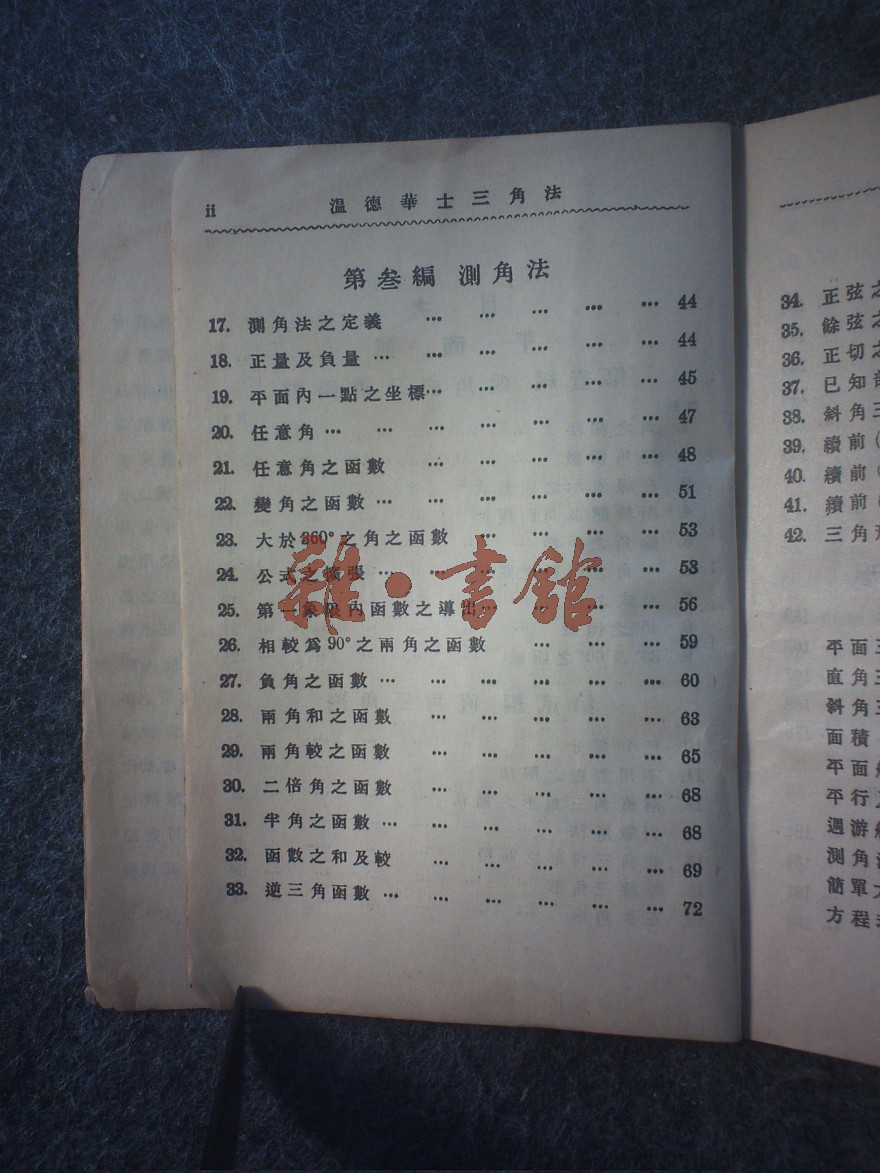 ii 温德華士三角法
第叁編 測角法
17. 測角法之定義 ... ... ... ... ... 44
18. 正量及負量 ... ... ... ... ... ... 44
19. 平面內一點之坐標 ... ... ... ... ... 45
20. 任意角 ... ... ... ... ... ... ... 47
21. 任意角之函數 ... ... ... ... ... 48
22. 變角之函數 ... ... ... ... ... ... 51
23. 大於360°之角之函數 ... ... ... ... 53
24. 公式之擴張 ... ... ... ... ... ... 53
25. 第一象限內函數之導出 ... ... ... ... 56
26. 相較爲90°之兩角之函數 ... ... ... 59
27. 負角之函數 ... ... ... ... ... ... 60
28. 兩角和之函數 ... ... ... ... ... 63
29. 兩角較之函數 ... ... ... ... ... 65
30. 二倍角之函數 ... ... ... ... ... 68
31. 半角之函數 ... ... ... ... ... ... 68
32. 函數之和及較 ... ... ... ... ... 69
33. 逆三角函數 ... ... ... ... ... ... 72
雜·書館
34. 正弦之
35. 餘弦之
36. 正切之
37. 已知
38. 斜角三
39. 續前(
40. 續前(
41. 續前(
42. 三角形
平面三
直角三
斜角三
面積
平面
平行
遇游
測角
簡單
方程式